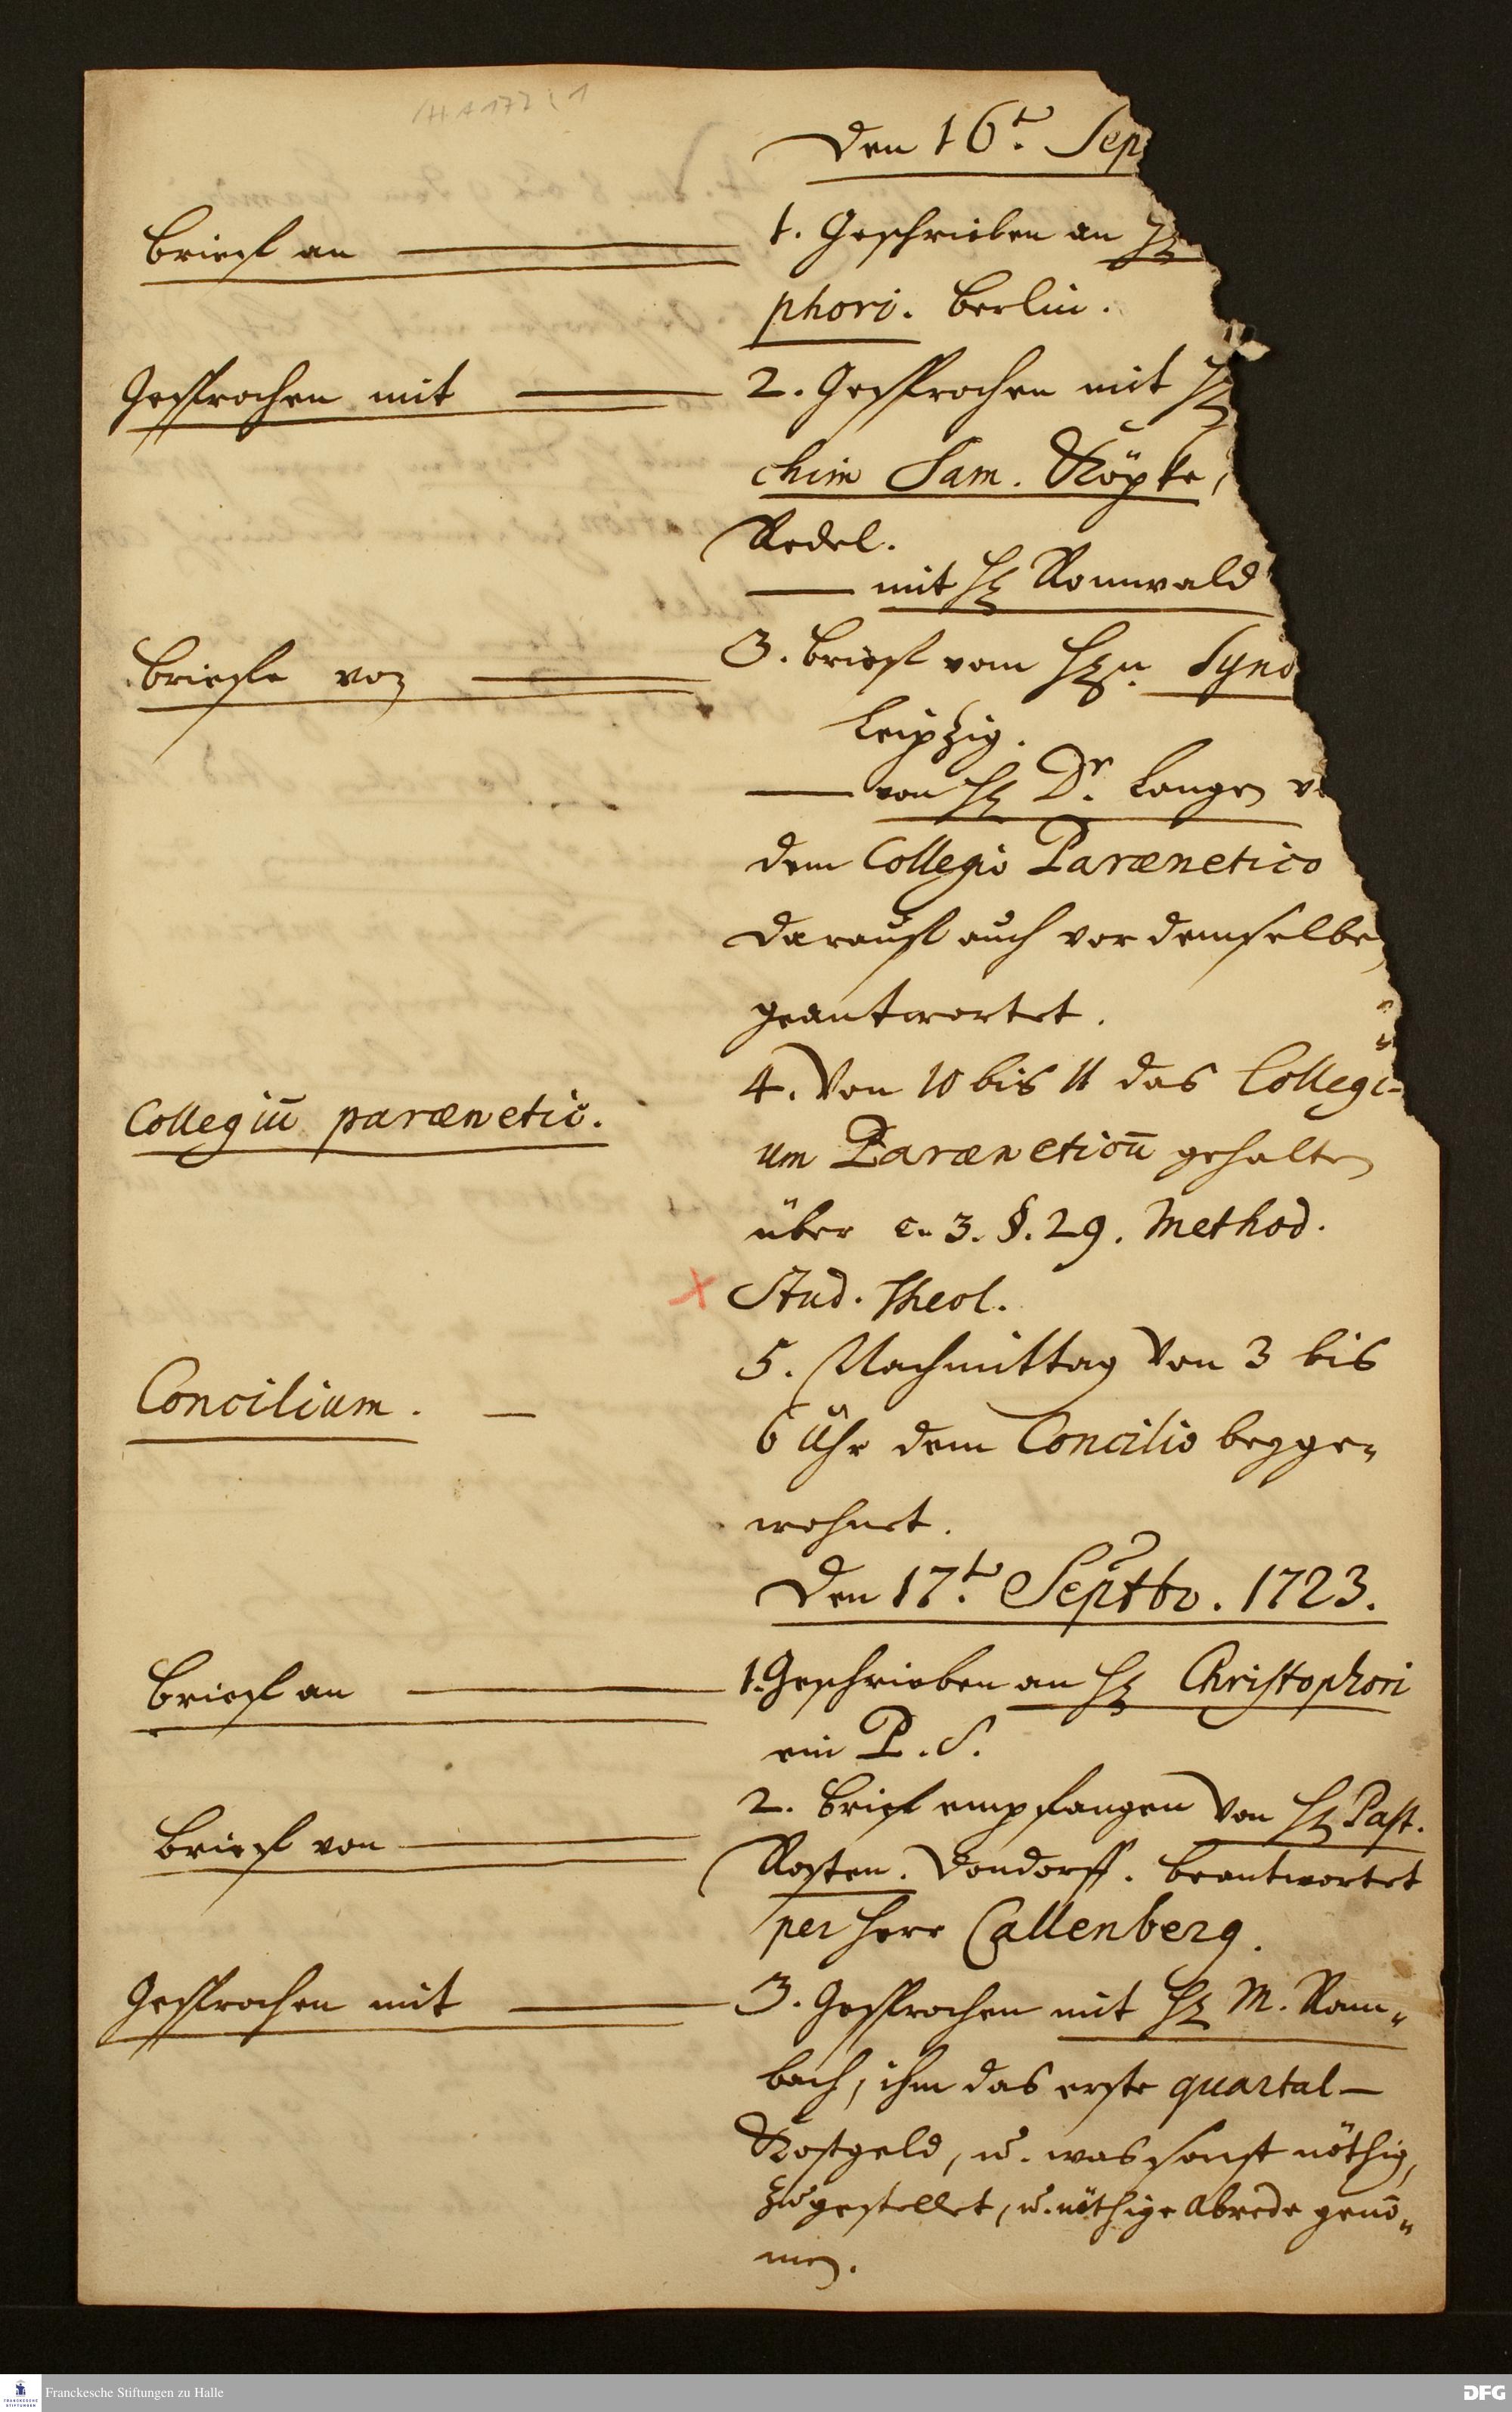 Den 16.t Sep
Brieff an
1. Geschrieben an H
phori. Berlin.
Gesprochen mit
2. Gesprochen mit H
chim Sam. Köpke,
Redel.
mit H Ronnwald
Brieffe von
3. Brieff vom Hrn. Syno
Leipzig.
von H Dr. Langen
dem Collegio Parænetico
darauff auch vor demselben
geantwortet.
Collegiū parænetic.
4. Von 10 bis 11 das Collegi-
um Paræneticū gehalten
über c. 3. §. 29. Method.
Stud. Theol.
Concilium.
5. Nachmittag Von 3 bis
6 Uhr dem Concilio beyge-
wohnet.
Den 17.t Septbr. 1723.
Brieff an
1. Geschrieben an H Christophori
ein P. S.
Brieff von
2. Brieff empfangen Von H Past.
Rosten. Dondorff. beantwortet
per Herr Callenberg.
Gesprochen mit
3. Gesprochen mit H M. Ram-
bach, ihm das erste quartal-
Kostgeld, u. was sonst nöthig,
zugestellet, u. nöthige Abrede genō-
men.
Franckesche Stiftungen zu Halle
DFG